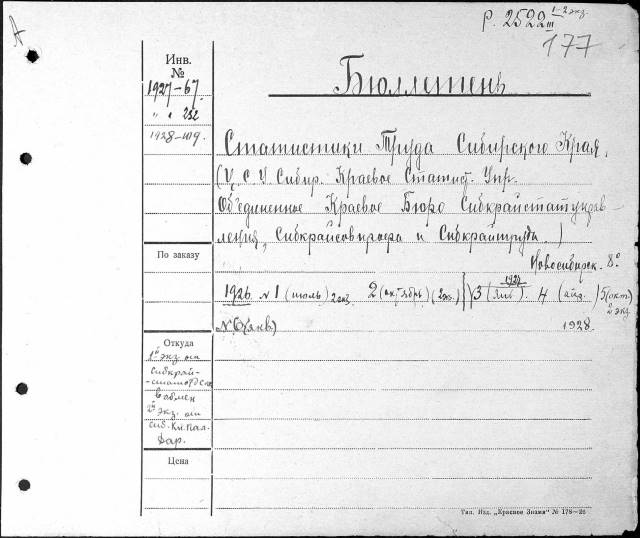 А
1-2 экз.
Р. 2522 III
177
Инв.
№
1927-67.
" " 232
1928-
Бюллетень
Статистики Труда Сибирского Края.
(Ц. С. У. Сибир. Краевое Статист. Упр.
Объединенное Краевое Бюро Сибкрайстатуправ-
ления, Сибкрайсовпрофа и Сибкрайтруда.)
По заказу
Новосибирск. 8°
1927
1926. №1 (июль) 2 экз. 2 (октябрь) (2 экз.) 3 (янв). 4 (апр.) 5 (окт)
2 экз
№6 (янв) 1928.
Откуда
1й экз от
Сибкрай-
в обмен
2й экз. от
сиб. Кн. пал.
дар.
Цена
Тип. Изд. „Красное Знамя" № 178—26